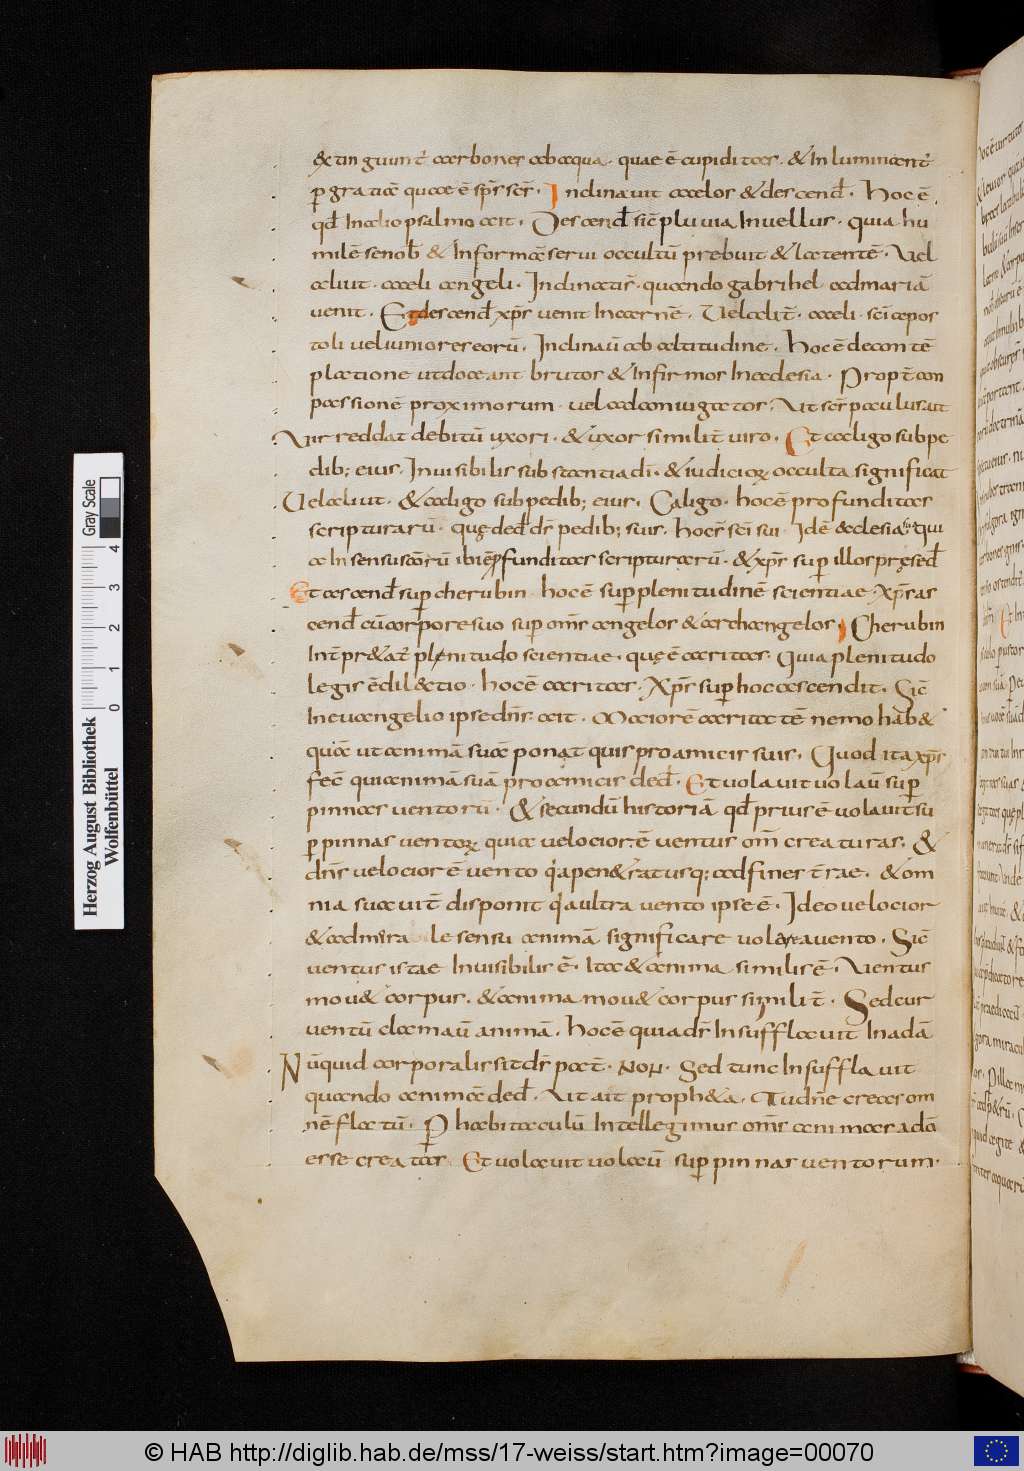 &tinguunt̄ carbones ab aqua · quae ē cupiditas · & Inluminant̄
p̄ gratiā quae ē sp̄s sc̄s · Inclinavit caelos & descend̄ · Hoc ē
qd̄ In alio psalmo ait · Descend̄ sic̄ pluvia In vellus · quia hu
milē se nob̄ & In formā servi occultū prebuit & latentē · Vel
aliut · caeli angeli · Inclinatis̄ · quando gabrihel ad mariā
venit · Et descend̄ xp̄s venit In carnē · Vel alit̄ · caeli · sc̄i apos
toli vel iuniores eorū · Inclinaū ab altitudine · Hoc ē de contē
platione ut doceant brutos & Infirmos In aeclesia · Propt̄ com
passionē proximorum · vel ad coniugatos · Ut sc̄s paulus ait
Vir reddat debitū uxori · & uxor similit̄ viro · Et caligo sub pe
dib; eius · Invisibilis substantia dī · & iudicioꝝ occulta significat
Vel aliut · & caligo sub pedib; eius · Caligo · hoc ē profunditas
scripturarū · quę ded̄ dr̄ pedib; suis · hoc ē sc̄i sui · Idē aeclesia · qui
a In sensu sc̄orū ibi ē p̄funditas scripturarū · & xp̄s sup̄ illos pręsed̄
Et ascend̄ sup̄ cherubin · hoc ē sup̄ plenitudinē scientiae · Xp̄s as
cend̄ cū corpore suo sup̄ om̄s angelos & archangelos · Cherubin
Int̄pr&at̄ plenitudo scientiae · quę ē caritas · Quia plenitudo
legis ē dil&tio · hoc ē caritas · Xp̄s sup̄ hoc ascendit · Sic̄
In evangelio ipse dn̄s ait · Maiorē caritatē nemo hab&
quā ut animā suā ponat quis pro amicis suis · Quod ita xp̄s
fec̄ qui animā suā pro amicis ded̄ · Et volavit volaū sup̄
pinnas ventorū · & secundū historiā qd̄ prius ē volavit su
p̄ pinnas ventoꝝ quia velocior ē ventus om̄ creaturas · &
dn̄s velocior ē vento q̇a pen&ratusq; ad fines t̄rae · & om
nia suavit̄ disponit q̇a ultra vento ipse ē · Ideo velocior
& admirale sensu animā significare vola a vento · Sic̄
ventus istae Invisibilis ē · Ita & anima similis ē · Ventus
mov& corpus · & anima mov& corpus similit̄ · Sed cur
ventū clamaū animā · hoc ē quia dr̄ Insufflavit In adā
Nūquid corporalis sit dr̄ pat̄ · NON · Sed tunc Insufflavit
quando animā ded̄ · Ut ait proph&a · Tu dn̄e creas om
nē flatū · P habitaculū Intellegimus om̄s animas ad ō
esse creatas · Et volavit volaū sup̄ pinnas ventorum ·
Herzog August Bibliothek
Wolfenbüttel
Gray Scale
0 1 2 3 4
© HAB http://diglib.hab.de/mss/17-weiss/start.htm?image=00070